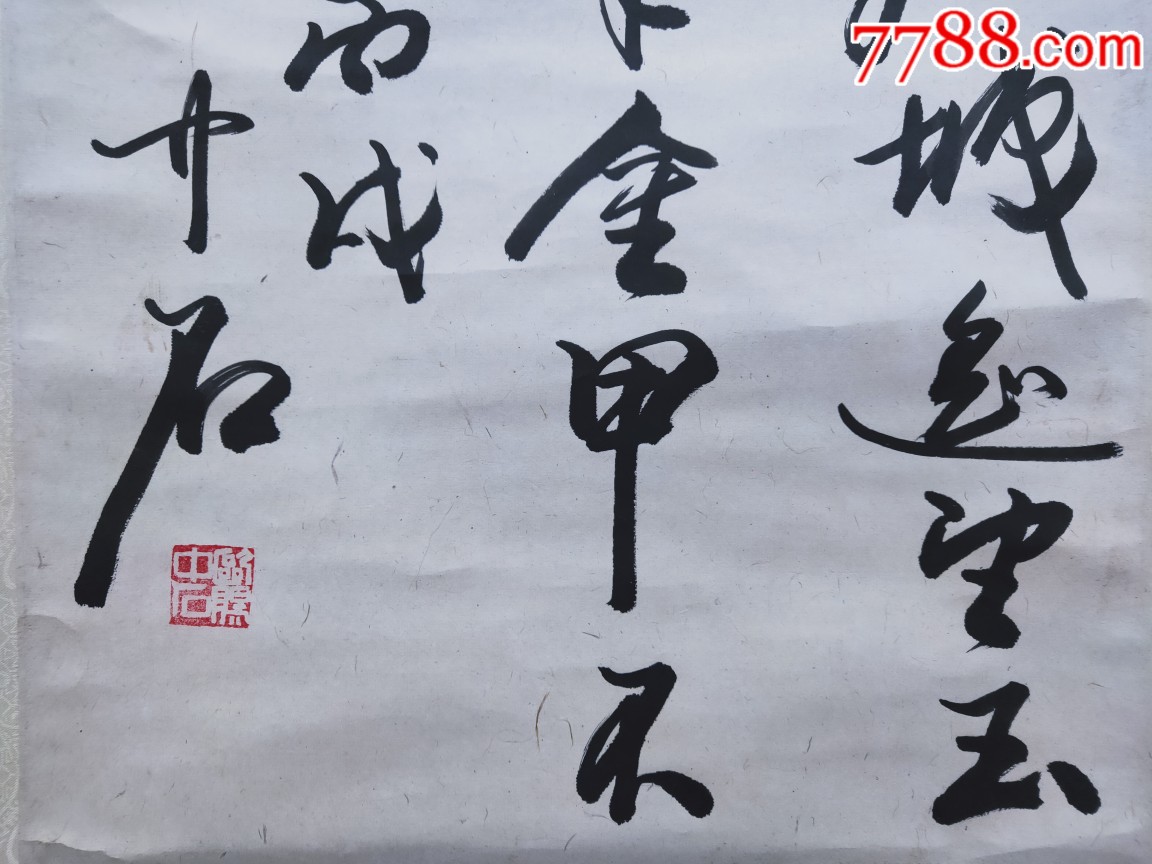 7788.com
城遥望玉
金甲不
丙戌
中石
中石